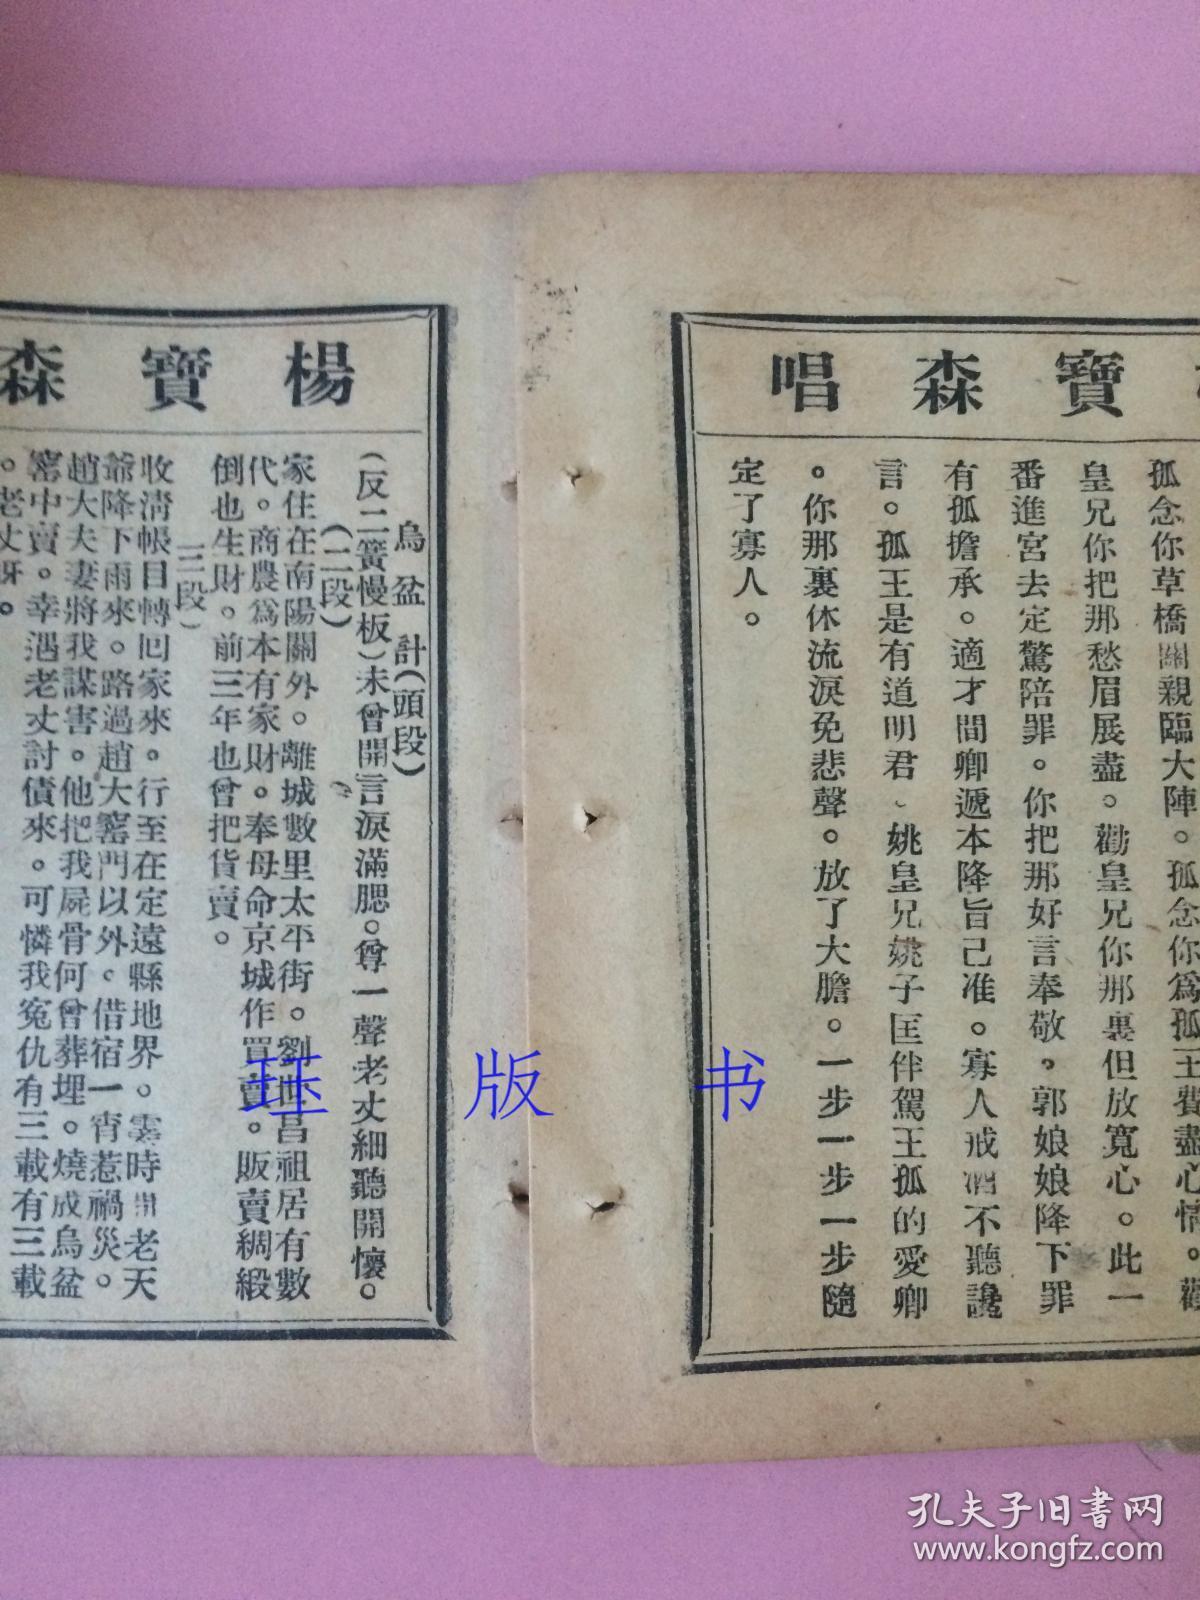 寶森唱
孤念你草橋關親臨大陣。孤念你爲孤王費盡心情。勸
皇兄你把那愁眉展盡。勸皇兄你那裏但放寬心。此一
番進宮去定驚陪罪。你把那好言奉敬。郭娘娘降下罪
有孤擔承。適才間卿遞本降旨己准。寡人戒酒不聽讒
言。孤王是有道明君、姚皇兄姚子匡伴駕王孤的愛卿
。你那裏休流淚免悲聲。放了大膽。一步一步一步隨
定了寡人。
楊寶森
烏盆計(頭段)
(反二簧慢板)未曾開言淚滿腮。尊一聲老丈細聽開懷。
(二段)
家住在南陽關外。離城數里太平街。劉世昌祖居有數
代。商農爲本有家財。奉母命京城作買賣。販賣綢緞
倒也生財。前三年也曾把貨賣。
三段)
收淸帳目轉回家來。行至在定遠縣地界。霎時間老天
爺降下雨來。路過趙大窰門以外。借宿一宵惹禍災。
趙大夫妻將我謀害。他把我屍骨何曾葬埋。燒成烏盆
窰中賣。幸遇老丈討債來。可憐我冤仇有三載有三載
。老丈呀。
珏版书
孔夫子旧书网
www.kongfz.com